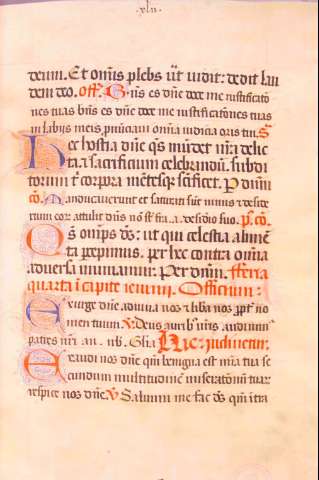 .xlii.
deum. Et omīs plebs ut vidit: dedit lau
dem deo. off. Bn̄s es dn̄e doce me iustificatō
nes tuas bn̄s es dn̄e doce me iustificatōnes tuas
in labijs meis pnūciavi omīa iudicia oris tui. S
Hec hostia dn̄e qs̄ mūdet nr̄a delic
ta et a sacrificium celebrandū. subdi
torum t corpora mētesqꝫ scificet. P dnū
cō. Manducaverunt et saturati sūt nimis t deside
rium eor attulit dn̄s nō st̄ fra. a desidio suo. p. cō.
Qs̄ omīps ds̄: ut qui celestia alimē
ta percepimus. per hec contra omīa
adversa muniamur. Per dnm̄. fferia
quarta ī capite ieiunij. Officium:
Exurge dn̄e adiuva nos t libera nos ꝓpt̄ no
men tuum. v Deus aurib' nr̄is audivimus
patres nr̄i an. nb. Gl̄ia Hic īndinetur.
Exaudi nos dn̄e qm̄ benigna est mīa tua se
cundum multitudinē miseratōnū tuar
respice nos dn̄e. v Salvum me fac ds̄ qm̄ ītra